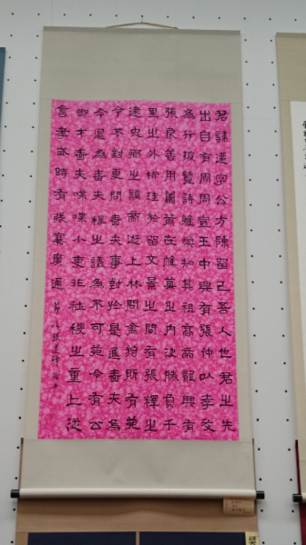 君諱遷字公方陳留己吾人也君之先
出自有周周宣王中興有張仲以孝友
為行披覽詩雅煥知其祖高帝龍興有
張良善用籌策在帷幕之內決勝負千
里之外析珪於留文景之間有張釋之
建忠弼之謨帝遊上林問禽狩所有苑
令不對更問嗇夫事對於是進嗇夫為
令退為嗇夫釋之議為不可苑令有公
卿之才嗇夫喋喋小吏非社稷之重上從
言孝武時有張騫廣通